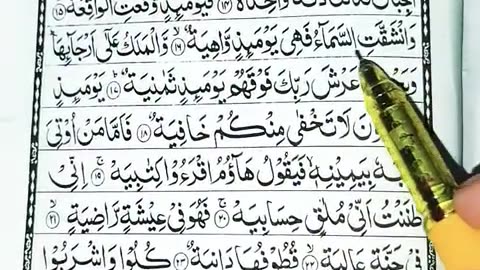 وَاحِدَةً ۱۴ فَيَوْمَئِذٍ وَّقَعَتِ الْوَاقِعَةُ ۱۵
وَانْشَقَّتِ السَّمَآءُ فَهِيَ يَوْمَئِذٍ وَّاهِيَةٌ ۱۶ وَّالْمَلَكُ عَلٰٓى اَرْجَآئِهَا ؕ
عَرْشَ رَبِّكَ فَوْقَهُمْ يَوْمَئِذٍ ثَمٰنِيَةٌ ۱۷ يَوْمَئِذٍ
لَا تَخْفٰى مِنْكُمْ خَافِيَةٌ ۱۸ فَاَمَّا مَنْ اُوْتِيَ
بِيَمِيْنِهٖ فَيَقُوْلُ هَآؤُمُ اقْرَءُوْا كِتٰبِيَهْ ۱۹ اِنِّيْ
ظَنَنْتُ اَنِّيْ مُلٰقٍ حِسَابِيَهْ ۲۰ فَهُوَ فِيْ عِيْشَةٍ رَّاضِيَةٍ ۲۱
فِيْ جَنَّةٍ عَالِيَةٍ ۲۲ قُطُوْفُهَا دَانِيَةٌ ۲۳ كُلُوْا وَاشْرَبُوْا